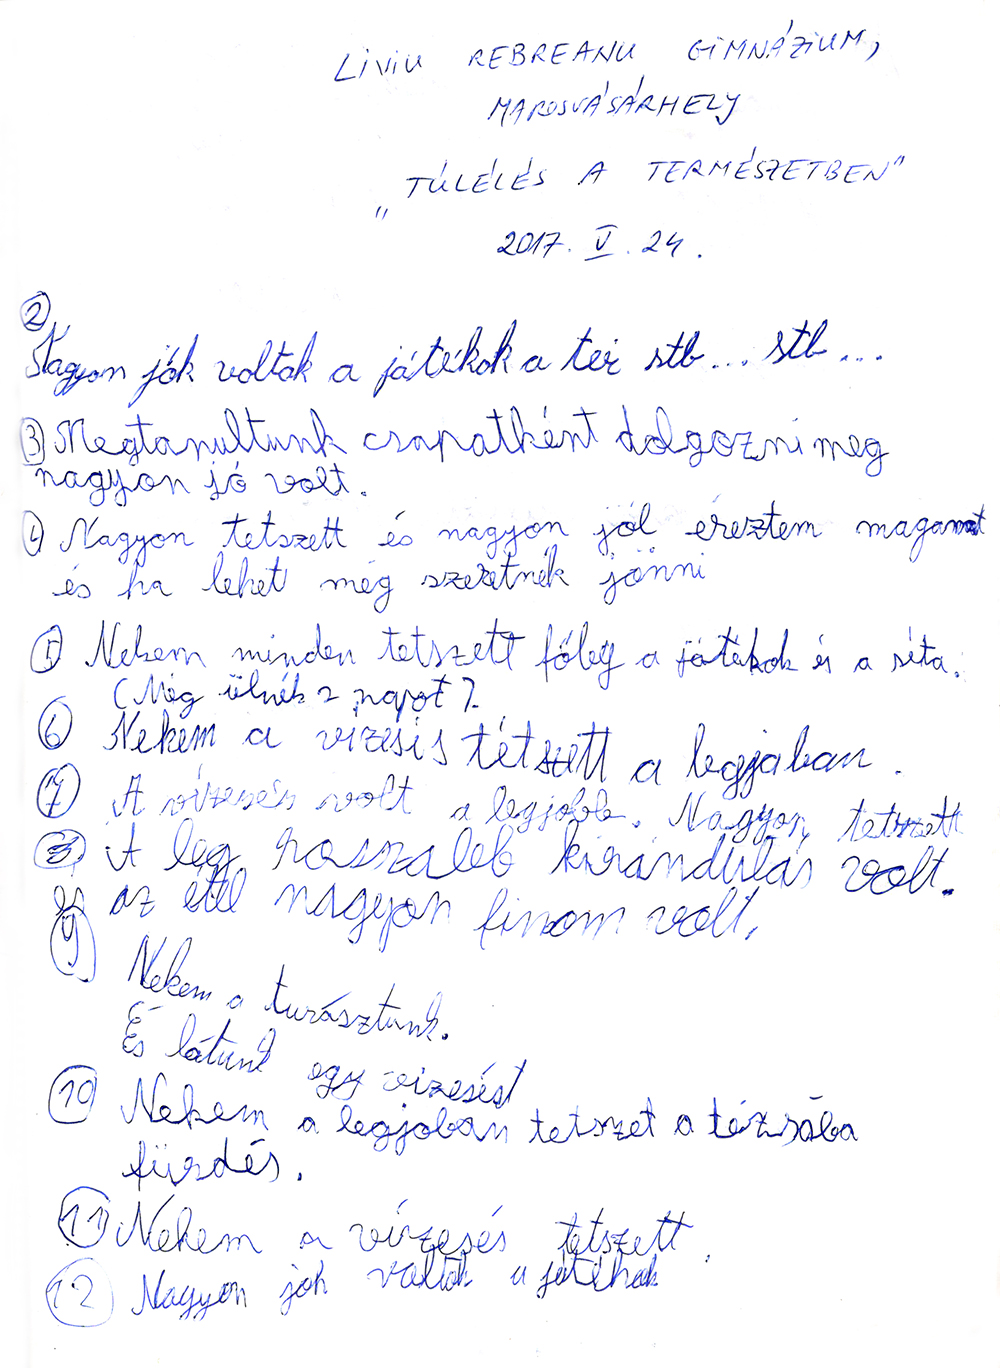 LIVIU REBREANU GIMNÁZIUM,
MAROSVÁSÁRHELY
„TÚLÉLÉS A TERMÉSZETBEN"
2017. V. 24.
2
Nagyon jók voltak a játékok a tér stb... stb...
3 Megtanultunk csapatként dolgozni meg
nagyon jó volt.
4 Nagyon tetszett és nagyon jól éreztem magamat
és ha lehet még szeretnék jönni
5 Nekem minden tetszett főleg a játékok és a séta.
(Még ülnék 2 napot).
6 Nekem a vizesis tétszett a legjaban.
7 A vízesés volt a legjobb. Nagyon tetszett
8 A leg hosszaleb kirándulás volt.
és az étel nagyon finom volt.
9
Nekem a turásztunk.
És látunk egy vizesést
10 Nekem a legjoban tetszet a tézsába
fürdés.
11 Nekem a vízesés tetszett.
12 Nagyon jók valtak a játékok